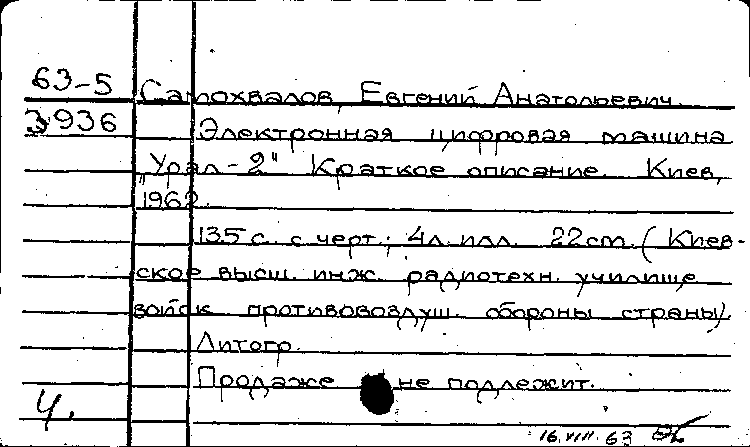 63-5
3936
Самохвалов, Евгений Анатольевич.
Электронная цифровая машина
„Урал-2" Краткое описание. Киев,
1962.
135 с. с черт.; 4л. илл. 22cm. (Киев-
ское высш. инж. радиотехн. училище
войск противовоздуш. обороны страны).
Литогр.
Продаже не подлежит.
Ч.
16.VIII.63